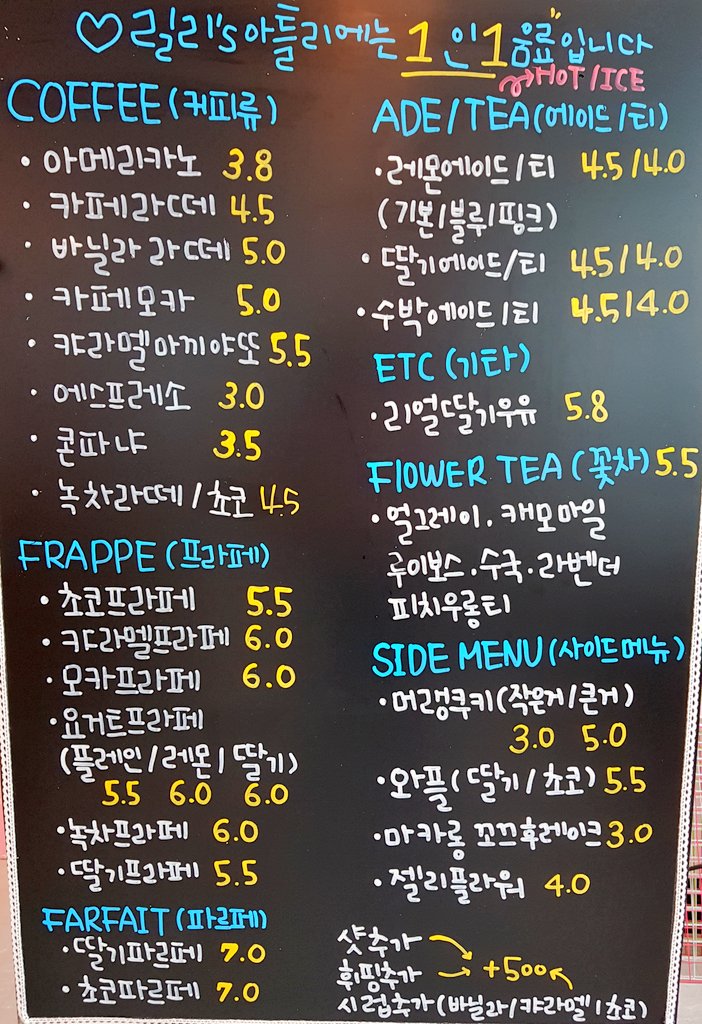 ♡ 릴리's 아틀리에는 1인 1음료"입니다
HOT/ICE
COFFEE(커피류)
· 아메리카노 3.8
· 카페라떼 4.5
· 바닐라 라떼 5.0
· 카페모카 5.0
· 캬라멜마끼야또 5.5
· 에스프레소 3.0
· 콘파냐 3.5
· 녹차라떼/초코 4.5
FRAPPE(프라페)
· 초코프라페 5.5
· 캬라멜프라페 6.0
· 모카프라페 6.0
· 요거트프라페
(플레인/레몬/딸기)
5.5 6.0 6.0
· 녹차프라페 6.0
· 딸기프라페 5.5
FARFAIT(파르페)
· 딸기파르페 7.0
· 초코파르페 7.0
ADE/TEA(에이드/티)
· 레몬에이드/티 4.5/4.0
(기본/블루/핑크)
· 딸기에이드/티 4.5/4.0
· 수박에이드/티 4.5/4.0
ETC(기타)
· 리얼딸기우유 5.8
FlOWER TEA(꽃차) 5.5
· 얼그레이 · 캐모마일
루이보스 · 수국 · 라벤더
피치우롱티
SIDE MENU(사이드메뉴)
· 머랭쿠키(작은거/큰거)
3.0 5.0
· 와플(딸기/초코) 5.5
· 마카롱 꼬끄후레이크 3.0
· 젤리플라워 4.0
샷추가
휘핑추가 → +500
시럽추가(바닐라/캬라멜/초코)